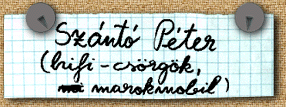 Szántó Péter
(hifi-csörgök,
marokmobil)